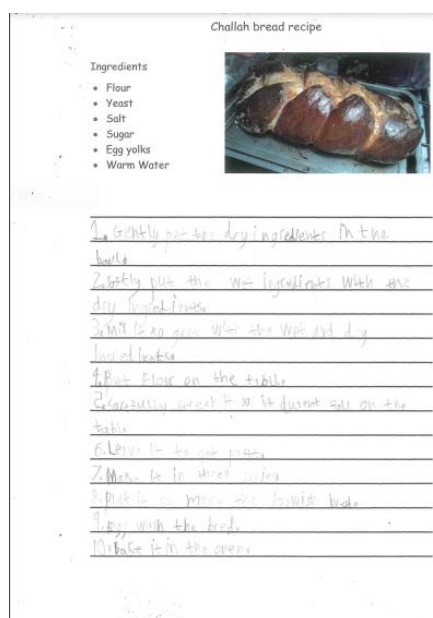 Challah bread recipe
Ingredients
Flour
Yeast
Salt
Sugar
Egg yolks
Warm Water
1. Gently put the dry ingredients in the
bowl.
2. put the wet ingredients with the
dry ingredients.
3. Mix it so with the wet and dry
ingredients.
4. Put Flour on the table.
5. carefully it so it on the
table
6. Leave it to get
7. Make it in three
8. it to make the
9. Egg with the bred.
10. bake it in the oven.